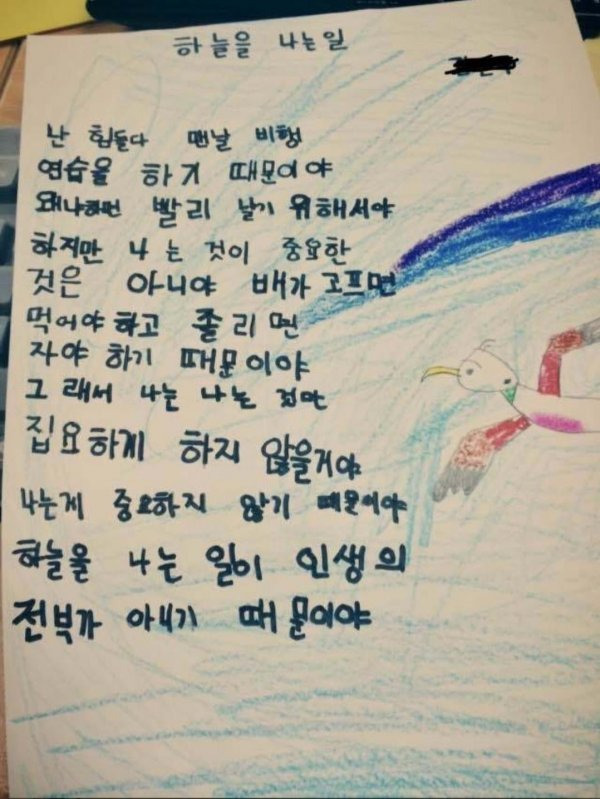 하늘을 나는일
난 힘들다 맨날 비행
연습을 하기 때문이야
왜냐하면 빨리 날기 위해서야
하지만 나는 것이 중요한
것은 아니야 배가 고프면
먹어야하고 졸리면
자야 하기 때문이야
그래서 나는 나는 것만
집요하게 하지 않을거야
나는게 중요하지 않기 때문이야
하늘을 나는 일이 인생의
전부가 아니기 때문이야